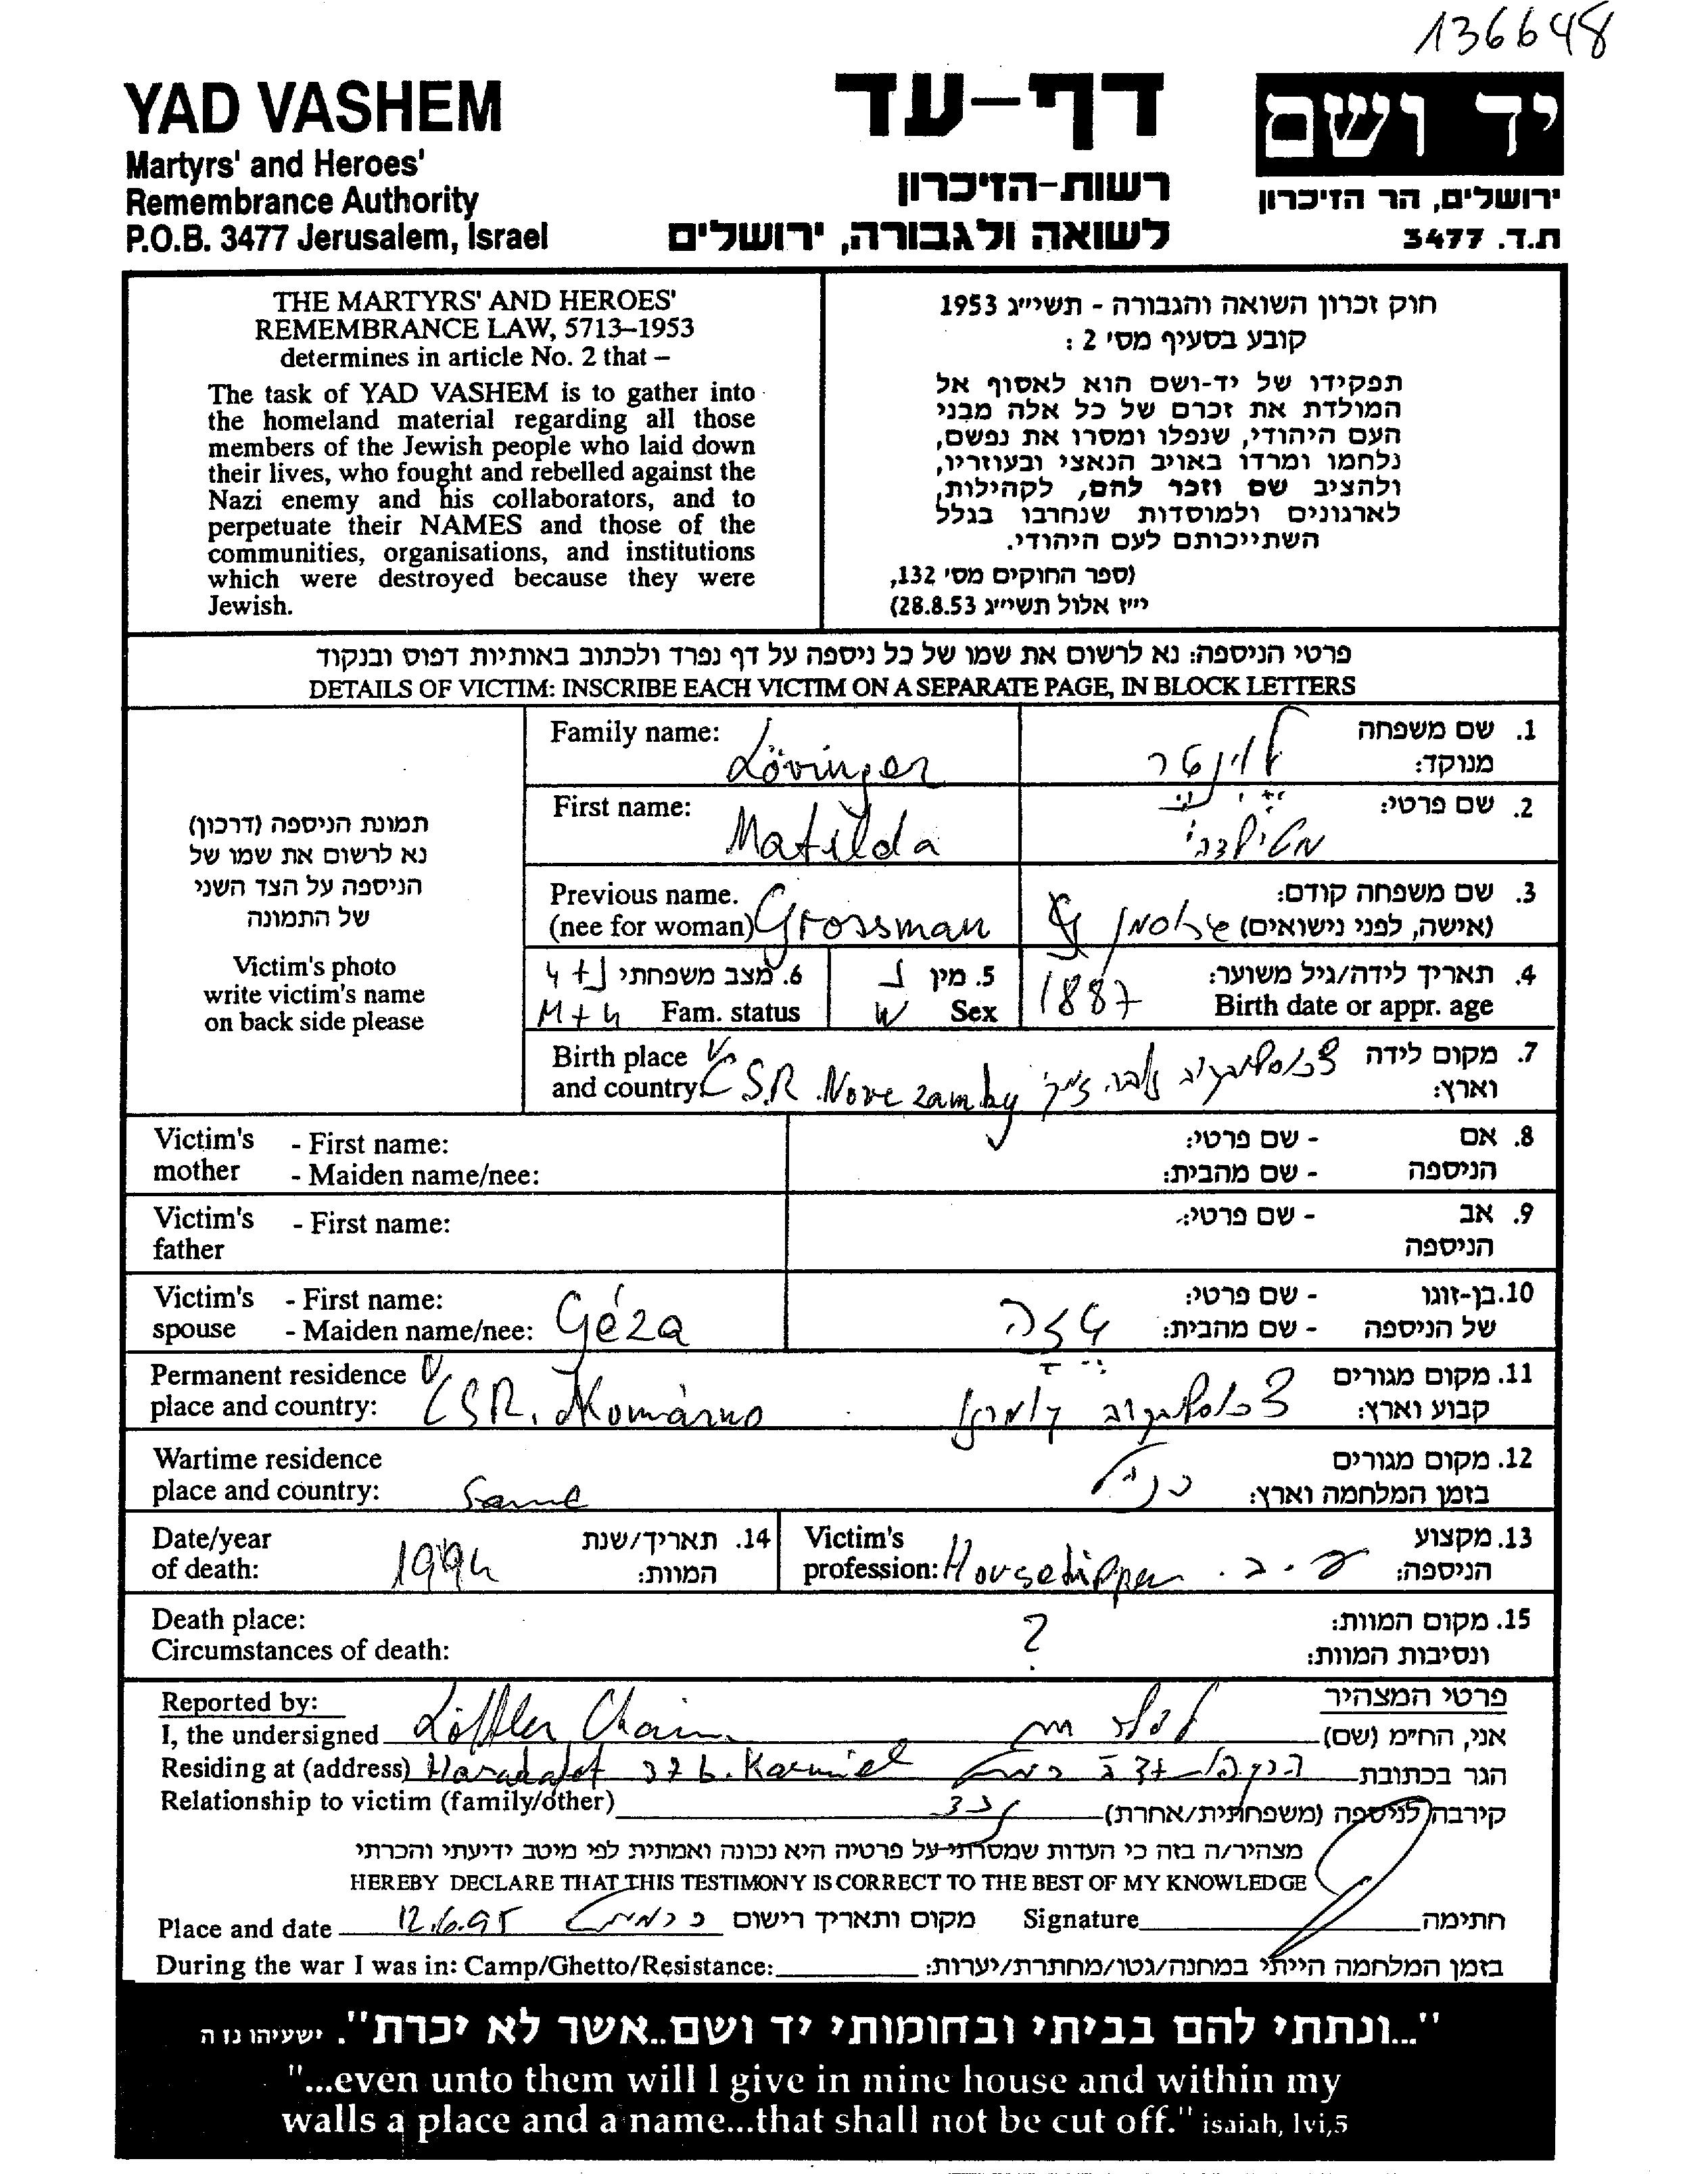 136648
YAD VASHEM
Martyrs' and Heroes'
Remembrance Authority
P.O.B. 3477 Jerusalem, Israel
דף-עד
רשות-הזיכרון
לשואה ולגבורה, ירושלים
יד ושם
ירושלים, הר הזיכרון
ת.ד. 3477
THE MARTYRS' AND HEROES'
REMEMBRANCE LAW, 5713–1953
determines in article No. 2 that –
The task of YAD VASHEM is to gather into
the homeland material regarding all those
members of the Jewish people who laid down
their lives, who fought and rebelled against the
Nazi enemy and his collaborators, and to
perpetuate their NAMES and those of the
communities, organisations, and institutions
which were destroyed because they were
Jewish.
חוק זכרון השואה והגבורה - תשי״ג 1953
קובע בסעיף מס׳ 2 :
תפקידו של יד-ושם הוא לאסוף אל
המולדת את זכרם של כל אלה מבני
העם היהודי, שנפלו ומסרו את נפשם,
נלחמו ומרדו באויב הנאצי ובעוזריו,
ולהציב שם וזכר להם, לקהילות,
לארגונים ולמוסדות שנחרבו בגלל
השתייכותם לעם היהודי.
(ספר החוקים מס׳ 132,
י״ז אלול תשי״ג 28.8.53)
פרטי הניספה: נא לרשום את שמו של כל ניספה על דף נפרד ולכתוב באותיות דפוס ובנקוד
DETAILS OF VICTIM: INSCRIBE EACH VICTIM ON A SEPARATE PAGE, IN BLOCK LETTERS
תמונת הניספה (דרכון)
נא לרשום את שמו של
הניספה על הצד השני
של התמונה
Victim's photo
write victim's name
on back side please
Family name: Lövinger
1. שם משפחה
מנוקד:
First name: Matilda
2. שם פרטי: מטילדה
Previous name.
(nee for woman) Grossman
3. שם משפחה קודם:
(אישה, לפני נישואים) גרוסמן
6. מצב משפחתי נ+4
M+4 Fam. status
5. מין נ
W Sex
4. תאריך לידה/גיל משוער:
1887 Birth date or appr. age
Birth place
and country: ČSR Nove zamky
7. מקום לידה
וארץ: צכוסלובקיה נובה זמקי
Victim's mother - First name:
- Maiden name/nee:
8. אם הניספה - שם פרטי:
- שם מהבית:
Victim's father - First name:
9. אב הניספה - שם פרטי:
Victim's spouse - First name:
- Maiden name/nee: Géza
10. בן-זוגו של הניספה - שם פרטי:
- שם מהבית: גזה
Permanent residence
place and country: ČSR, Komárno
11. מקום מגורים
קבוע וארץ: צכוסלובקיה קומרנו
Wartime residence
place and country: Same
12. מקום מגורים
בזמן המלחמה וארץ: כנ״ל
Date/year
of death: 1944
14. תאריך/שנת
המוות:
Victim's
profession:
13. מקצוע
הניספה: ע.ב.
Death place:
Circumstances of death: ?
15. מקום המוות:
ונסיבות המוות:
Reported by:
פרטי המצהיר
I, the undersigned Löffler Chaim
אני, הח״מ (שם) לפלר חיים
Residing at (address) 37 b. Karmiel
הגר בכתובת
Relationship to victim (family/other)
קירבה לניספה (משפחתית/אחרת) נכד
מצהיר/ה בזה כי העדות שמסרתי על פרטיה היא נכונה ואמתית לפי מיטב ידיעתי והכרתי
HEREBY DECLARE THAT THIS TESTIMONY IS CORRECT TO THE BEST OF MY KNOWLEDGE
Place and date 12.6.95 כרמיאל מקום ותאריך רישום Signature חתימה
During the war I was in: Camp/Ghetto/Resistance: בזמן המלחמה הייתי במחנה/גטו/מחתרת/יערות:
"...ונתתי להם בביתי ובחומותי יד ושם..אשר לא יכרת". ישעיהו נו ה
"...even unto them will I give in mine house and within my
walls a place and a name...that shall not be cut off." isaiah, lvi,5